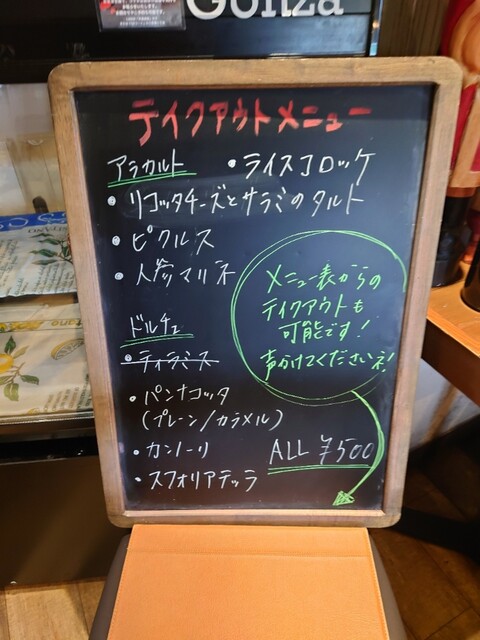 Gonza
テイクアウトメニュー
アラカルト ・ライスコロッケ
・リコッタチーズとサラミのタルト
・ピクルス
・人参マリネ
メニュー表からの
テイクアウトも
可能です!
声かけてくださいネ!
ドルチェ
・ティラミス
・パンナコッタ
(プレーン/カラメル)
・カンノーリ
・スフォリアテッラ
ALL ¥500